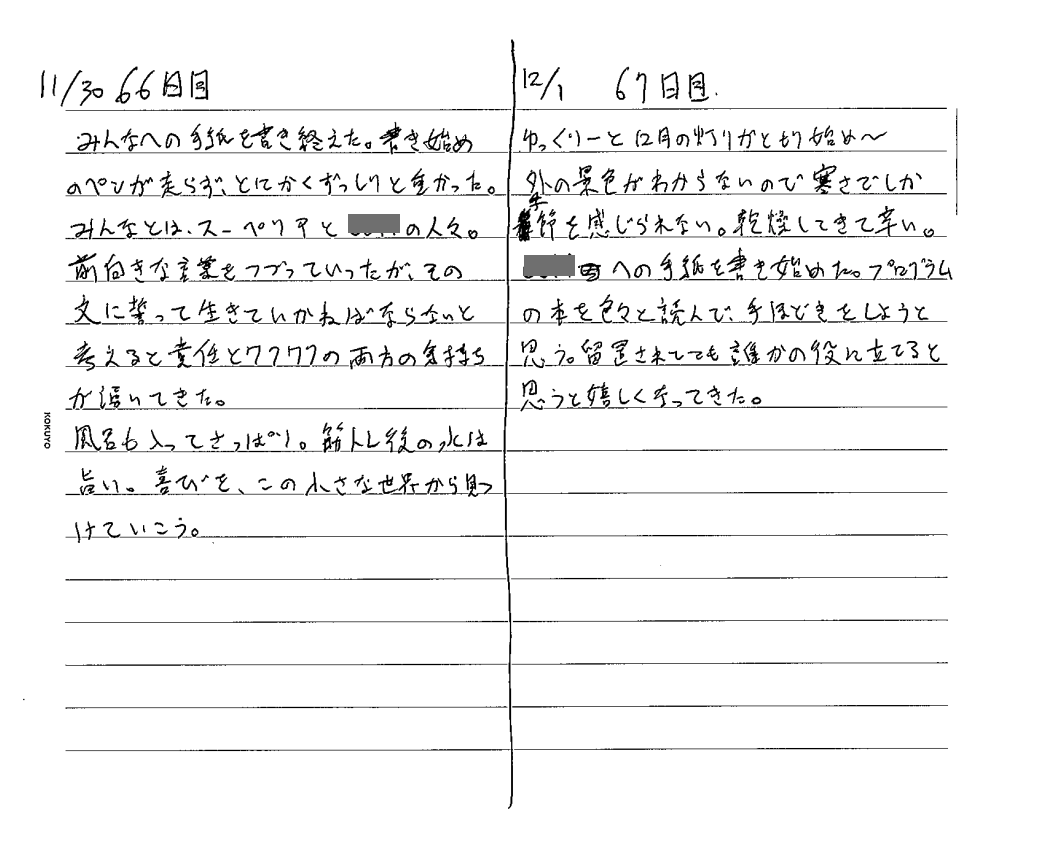 11/30 66日目
みんなへの手紙を書き終えた。書き始め
のペンが走らず、とにかくずっしりと重かった。
みんなとは、スーペリアと の人々。
前向きな言葉をつづっていったが、その
文に誓って生きていかねばならないと
考えると責任とワクワクの両方の気持ち
が湧いてきた。
風呂も入ってさっぱり。筋トレ後の水は
旨い。喜びを、この小さな世界から見つ
けていこう。
KOKUYO
12/1 67日目.
ゆっくりーと12月の灯りがともり始め〜
外の景色がわからないので寒さでしか
季節を感じられない。乾燥してきて辛い。
への手紙を書き始めた。プログラム
の本を色々と読んで、手ほどきをしようと
思う。留置されてても誰かの役に立てると
思うと嬉しくなってきた。